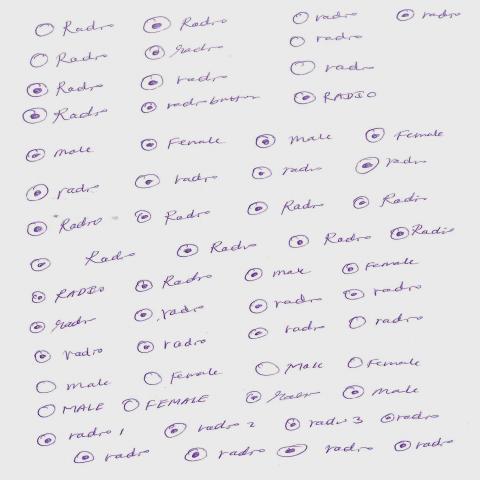 Radio Radio radio radio
Radio Radio radio
Radio radio radio
Radio radiobutton RADIO
male Female male Female
radio radio radio radio
Radio Radio Radio Radio
Radio Radio Radio Radio
RADIO Radio male Female
Radio radio radio radio
radio radio radio radio
male Female Male Female
MALE FEMALE Radio male
radio 1 radio 2 radio 3 radio
radio radio radio radio